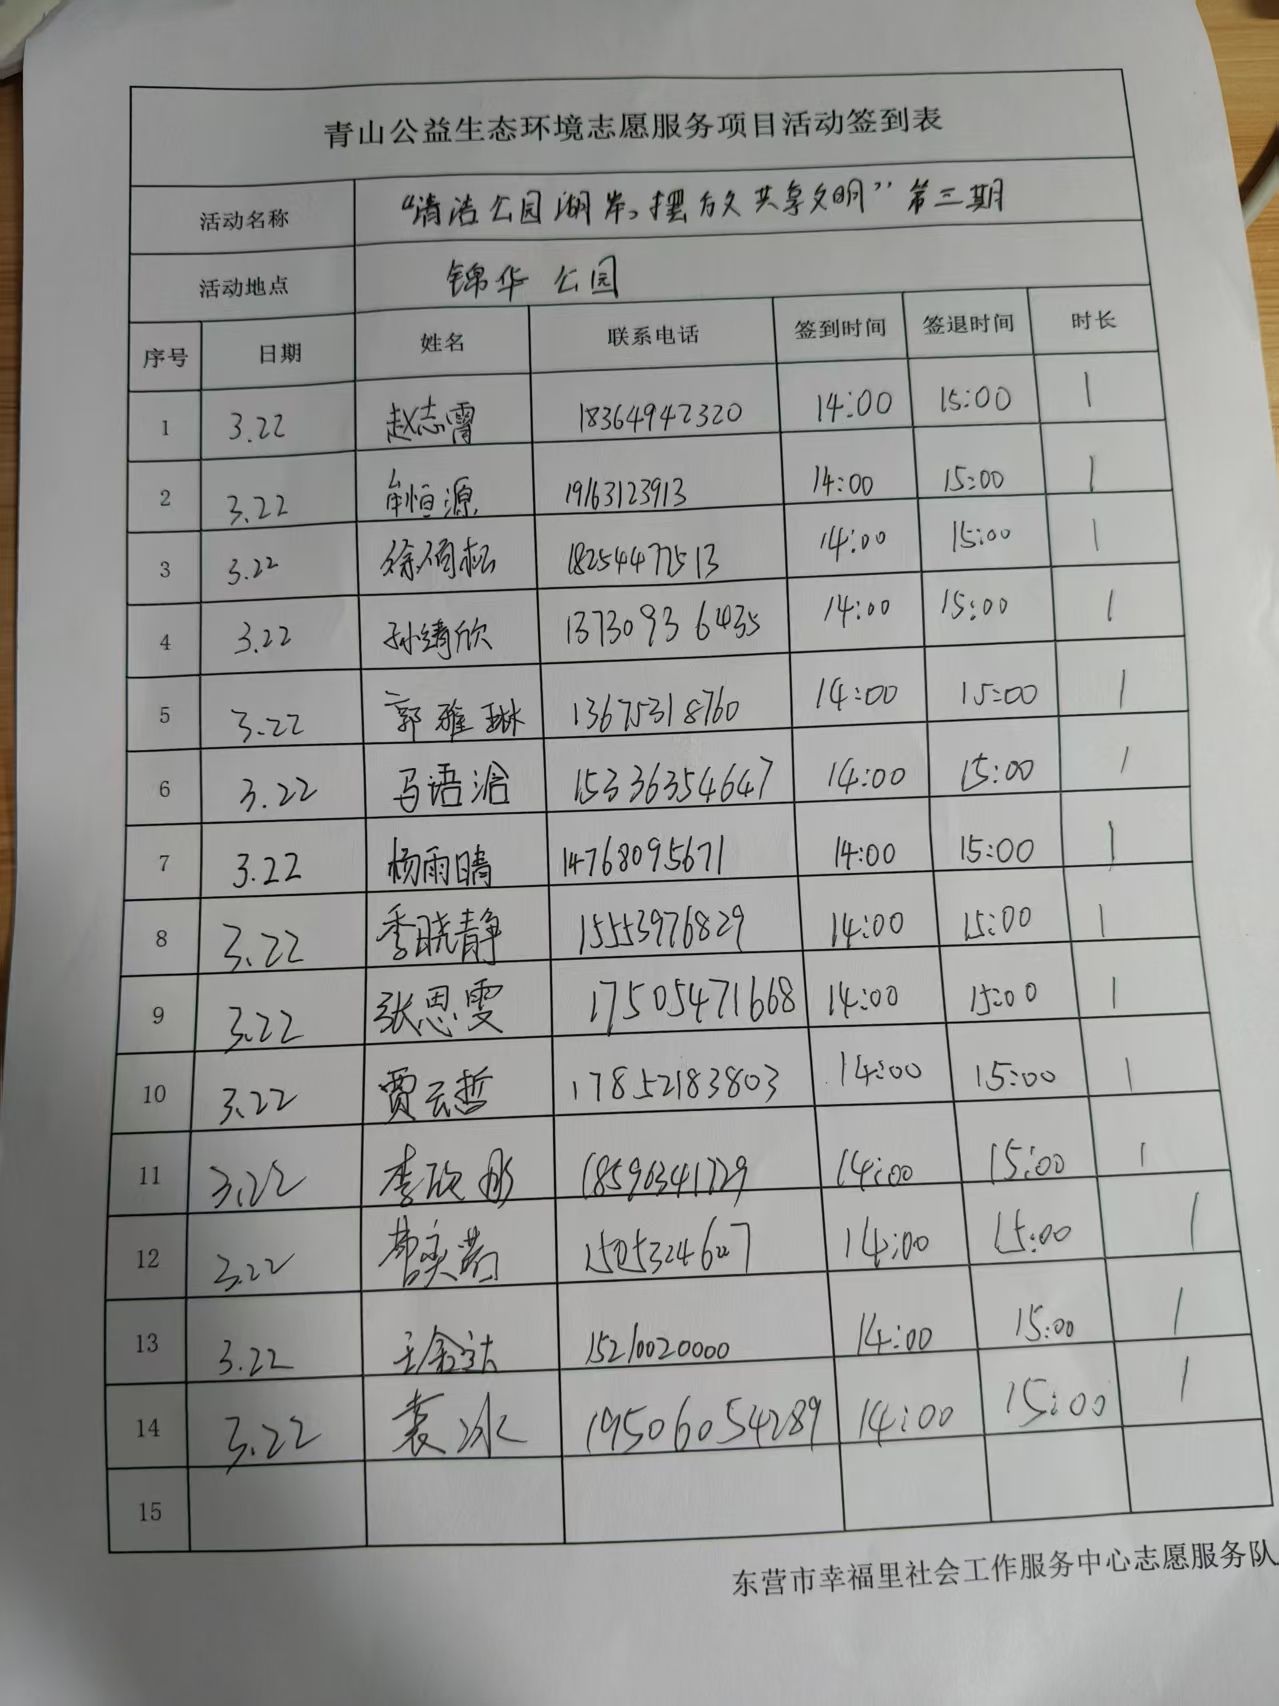 青山公益生态环境志愿服务项目活动签到表
活动名称 “清洁公园湖岸,摆放共享文明”第三期
活动地点 锦华公园
序号 日期 姓名 联系电话 签到时间 签退时间 时长
1 3.22 赵志霄 18364942320 14:00 15:00 1
2 3.22 牟恒源 19163123913 14:00 15:00 1
3 3.22 徐 松 18254477513 14:00 15:00 1
4 3.22 孙靖欣 13730936435 14:00 15:00 1
5 3.22 郭雅琳 13675318760 14:00 15:00 1
6 3.22 马语涵 15336354647 14:00 15:00 1
7 3.22 杨雨晴 14768095671 14:00 15:00 1
8 3.22 季晓静 15553976829 14:00 15:00 1
9 3.22 张思雯 17505471668 14:00 15:00 1
10 3.22 贾云哲 17852183803 14:00 15:00 1
11 3.22 李欣彤 18596341729 14:00 15:00 1
12 3.22 14:00 15:00 1
13 3.22 王金达 15210020000 14:00 15:00 1
14 3.22 袁冰 19506054289 14:00 15:00 1
15
东营市幸福里社会工作服务中心志愿服务队